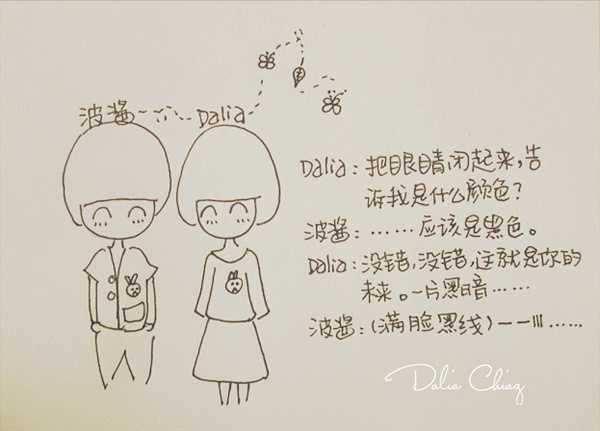 波酱 Dalia
Dalia：把眼睛闭起来，告
诉我是什么颜色？
波酱：……应该是黑色。
Dalia：没错，没错，这就是你的
未来。一片黑暗……
波酱：(满脸黑线)一一|||……
Dalia Chiag